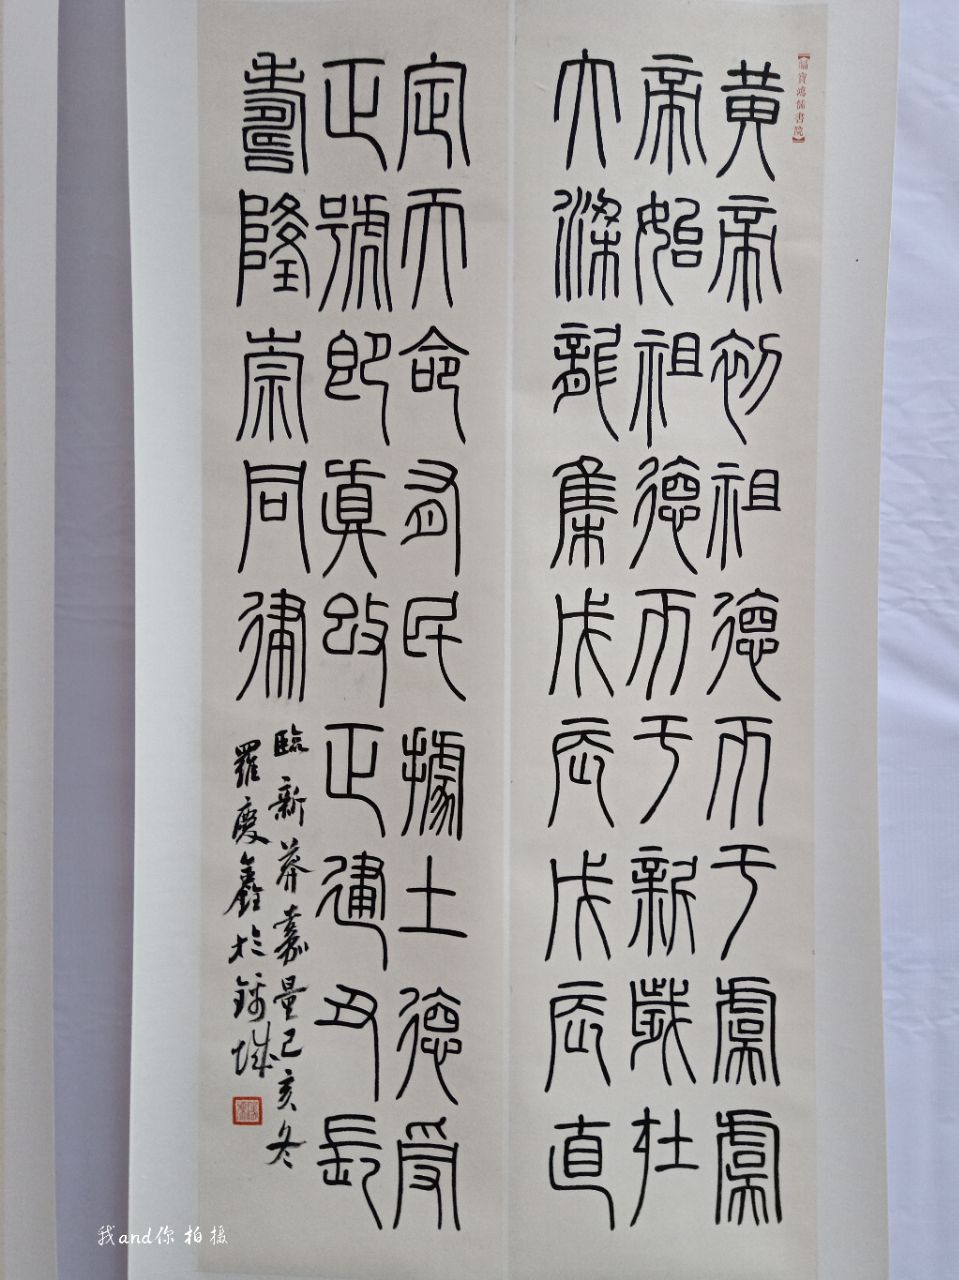 黄帝初祖德帀于虞虞
帝始祖德帀于新歲在
大梁龍集戊辰戊辰直
定天命有民據土德受
正號即真改正建丑長
壽隆崇同律
臨新莽嘉量己亥冬
羅慶鑫於錦城
我and你 拍摄